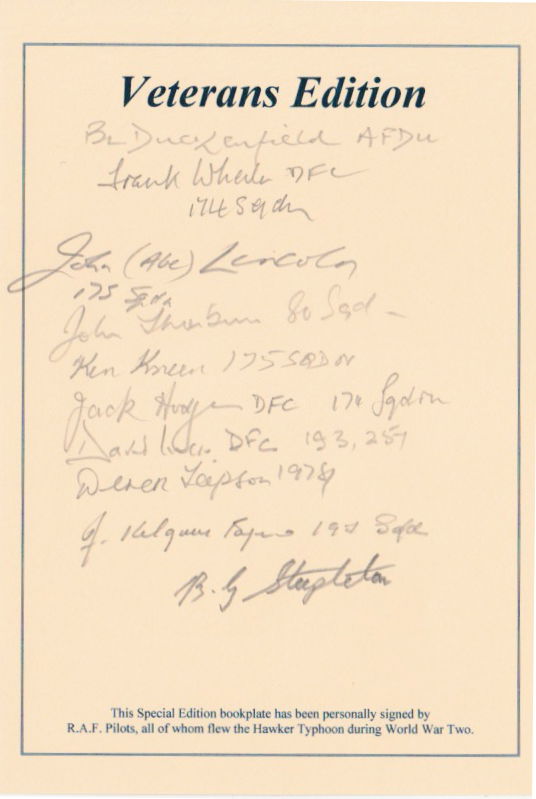 Veterans Edition
Duckenfield AFDU
Frank Wheeler DFC
174 Sqdn
John (Abe) Lincoln
175 Sqdn
John 80 Sqd
Ken Kneen 175 SQDN
Jack Hodges DFC 174 Sqdrn
David DFC 193, 257
Derek
J. Kilgour
B. G Stapleton
This Special Edition bookplate has been personally signed by
R.A.F. Pilots, all of whom flew the Hawker Typhoon during World War Two.